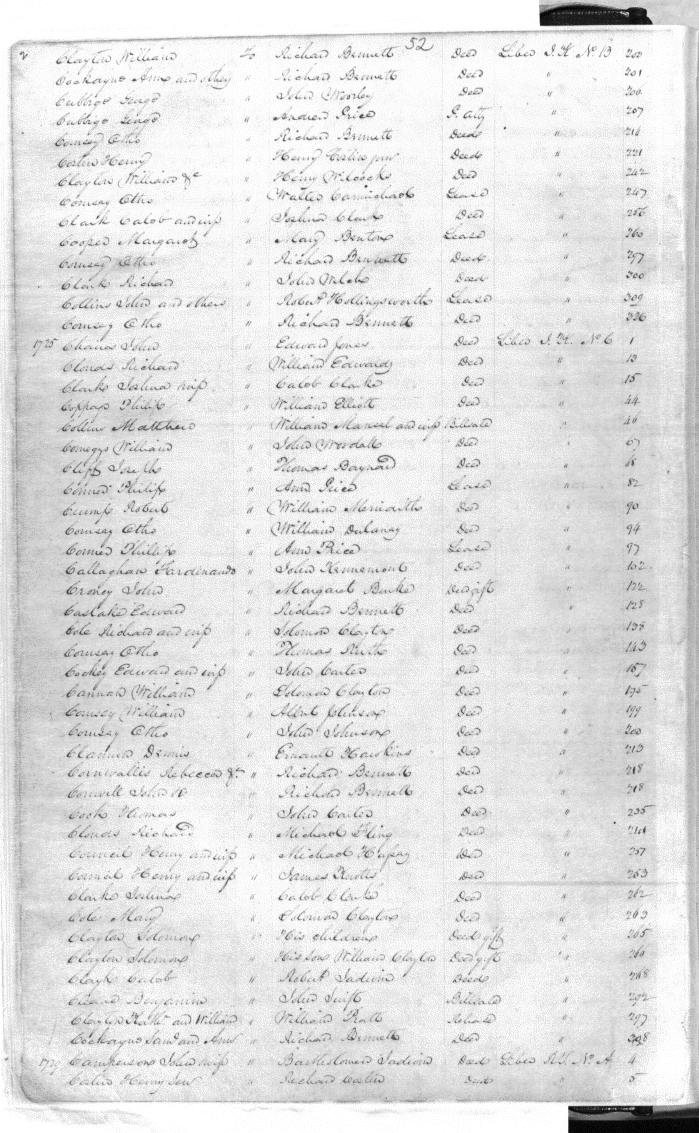 52
2 Clayton William To Richard Bennett Deed Liber I. K No B 200
Cockayne Ann and others " Richard Bennett Deed " 201
Cubbige George " John Woorley Deed " 206
Cubbige George " Andrew Price P. Atty " 207
Comsey Otho " Richard Bennett Deed " 214
Costin Henry " Henry Costin junr Deed " 221
Clayton William &c " Henry Wilcocks Deed " 242
Comsey Otho " Walter Carmichael Lease " 247
Clark Calob and wife " Joshua Clark Deed " 256
Cooper Margaret " Mary Benton Lease " 260
Comsey Otho " Richard Bennett Deed " 297
Clark Richard " John Welch Deed " 300
Collins John and others " Robert Hollingsworth Lease " 309
Comsey Otho " Richard Bennett Deed " 326
1725 Chaires John " Edward Jones Deed Liber I. K. No C 1
Clouds Richard " William Edwards Deed " 13
Clarke Joshua wife " Calob Clarke Deed " 15
Coppage Philip " William Elliott Deed " 44
Collins Matthew " William Mansel and wife Billsale " 46
Comegys William " John Woodall Deed " 67
Clift Joseph " Thomas Baynard Deed " 68
Conner Philip " Ann Price Lease " 82
Crump Robert " William Meridith Deed " 90
Comsey Otho " William Dulaney Deed " 94
Conner Phillip " Ann Price Lease " 97
Callaghan Ferdinando " John Hennemont Deed " 102
Croney John " Margaret Burke Deed gift " 122
Caslake Edward " Richard Bennett Deed " 128
Cole Richard and wife " Solomon Clayton Deed " 138
Comsey Otho " Thomas Ruth Deed " 143
Cockey Edward and wife " John Carter Deed " 157
Cannan William " Solomon Clayton Deed " 195
Comsey William " Albert Johnson Deed " 199
Comsey Otho " John Johnson Deed " 200
Clannen Dennis " Ernault Hawkins Deed " 213
Cornwallis Rebecca &c " Richard Bennett Deed " 218
Conwill John &c " Richard Bennett Deed " 218
Cook Thomas " John Carter Deed " 235
Clouds Richard " Michael Kling Deed "
Council Henry and wife " Michael Hussey Deed " 257
Council Henry and wife " James Knotts Deed " 253
Clarke Joshua " Calob Clarke Deed " 262
Cole Mary " Solomon Clayton Deed " 263
Clayton Solomon " His children Deed gift " 265
Clayton Solomon " His son William Clayton Deed gift " 266
Clayk Calob " Robert Jadwin Deed " 268
Benjamin " John Swift Billsale " 292
Clayton Kathe. and William " William Pratt Release " 297
Cockayne Saml. and Ann " Richard Bennett Deed " 298
1729 Camperson John wife " Bartholomew Jadwin Deed Liber R.T. No A 4
Costin Henry Senr " Richard Costin Deed " 5